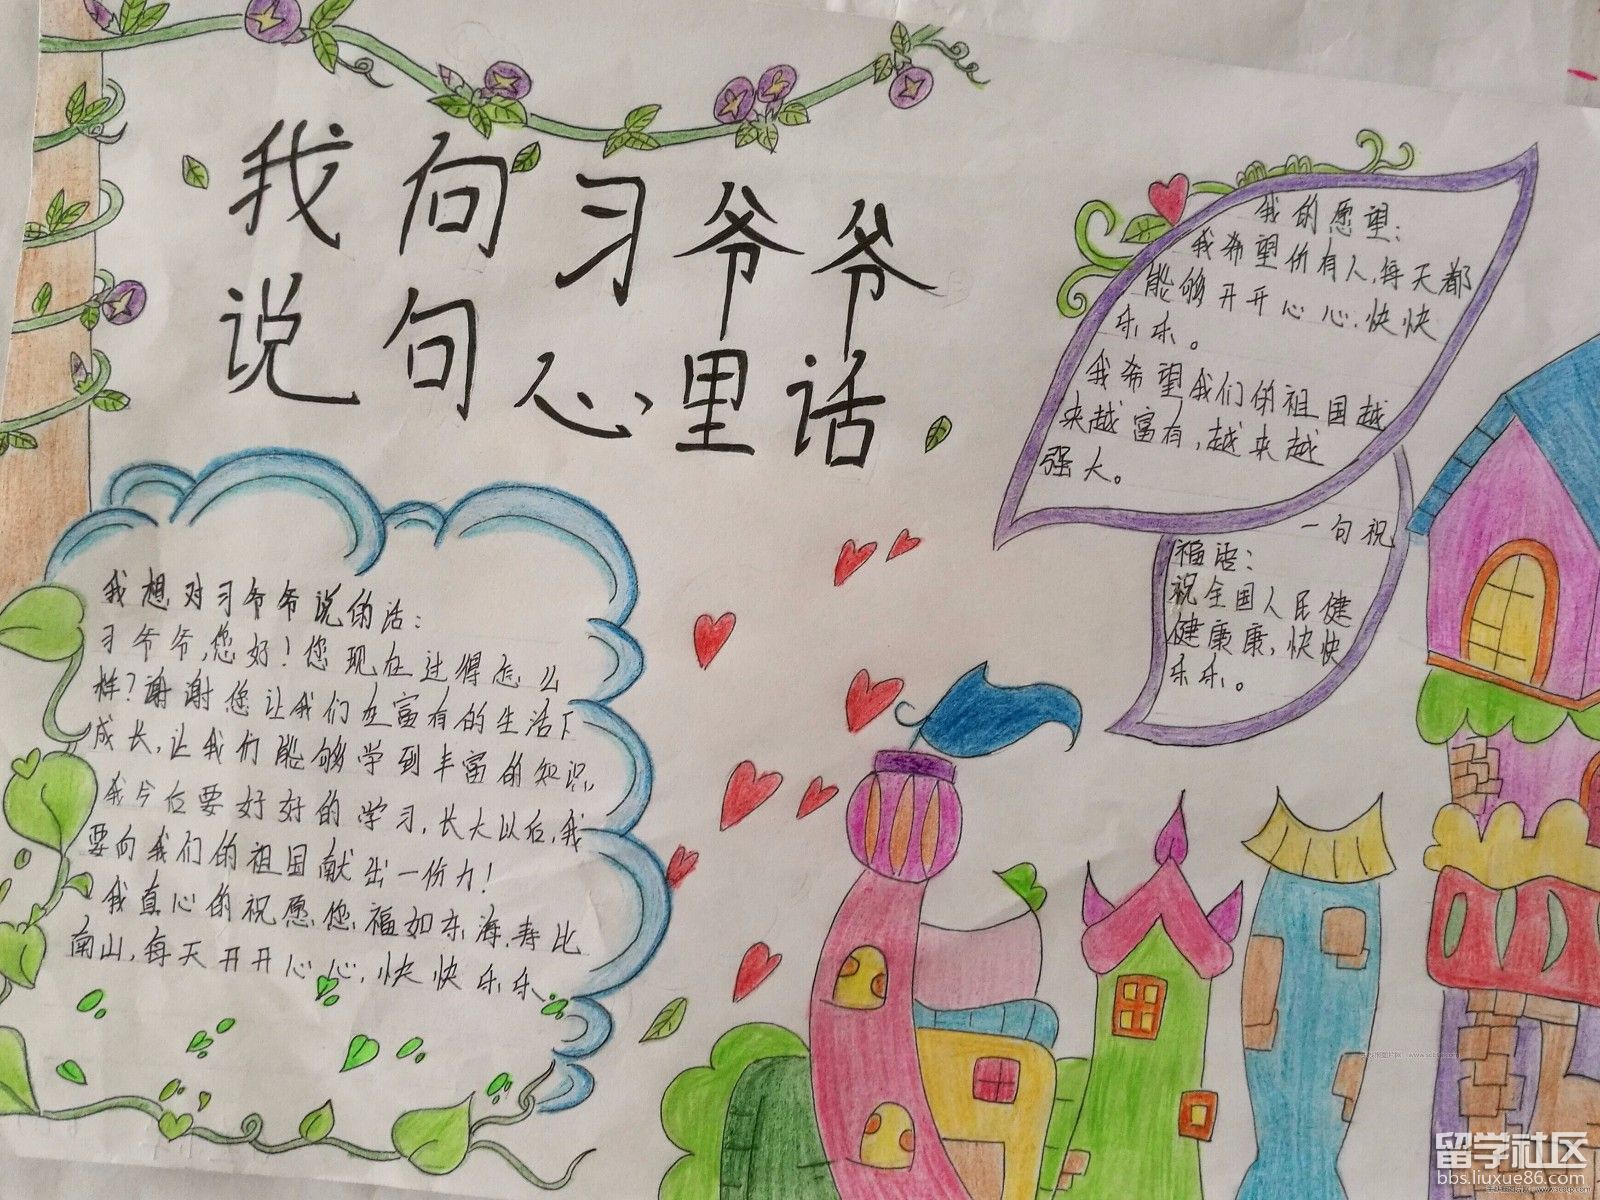 我向习爷爷
说句心里话
我的愿望：
我希望所有人,每天都
能够开开心心,快快
乐乐。
我希望我们的祖国越
来越富有,越来越
强大。
一句祝
福语：
祝全国人民健
健康康,快快
乐乐。
我想对习爷爷说的话：
习爷爷,您好!您现在过得怎么
样?谢谢您让我们在富有的生活下
成长,让我们能够学到丰富的知识,
我今后要好好的学习,长大以后,我
要向我们的祖国献出一份力!
我真心的祝愿您福如东海,寿比
南山,每天开开心心,快快乐乐。
留学社区
bbs.liuxue86.com